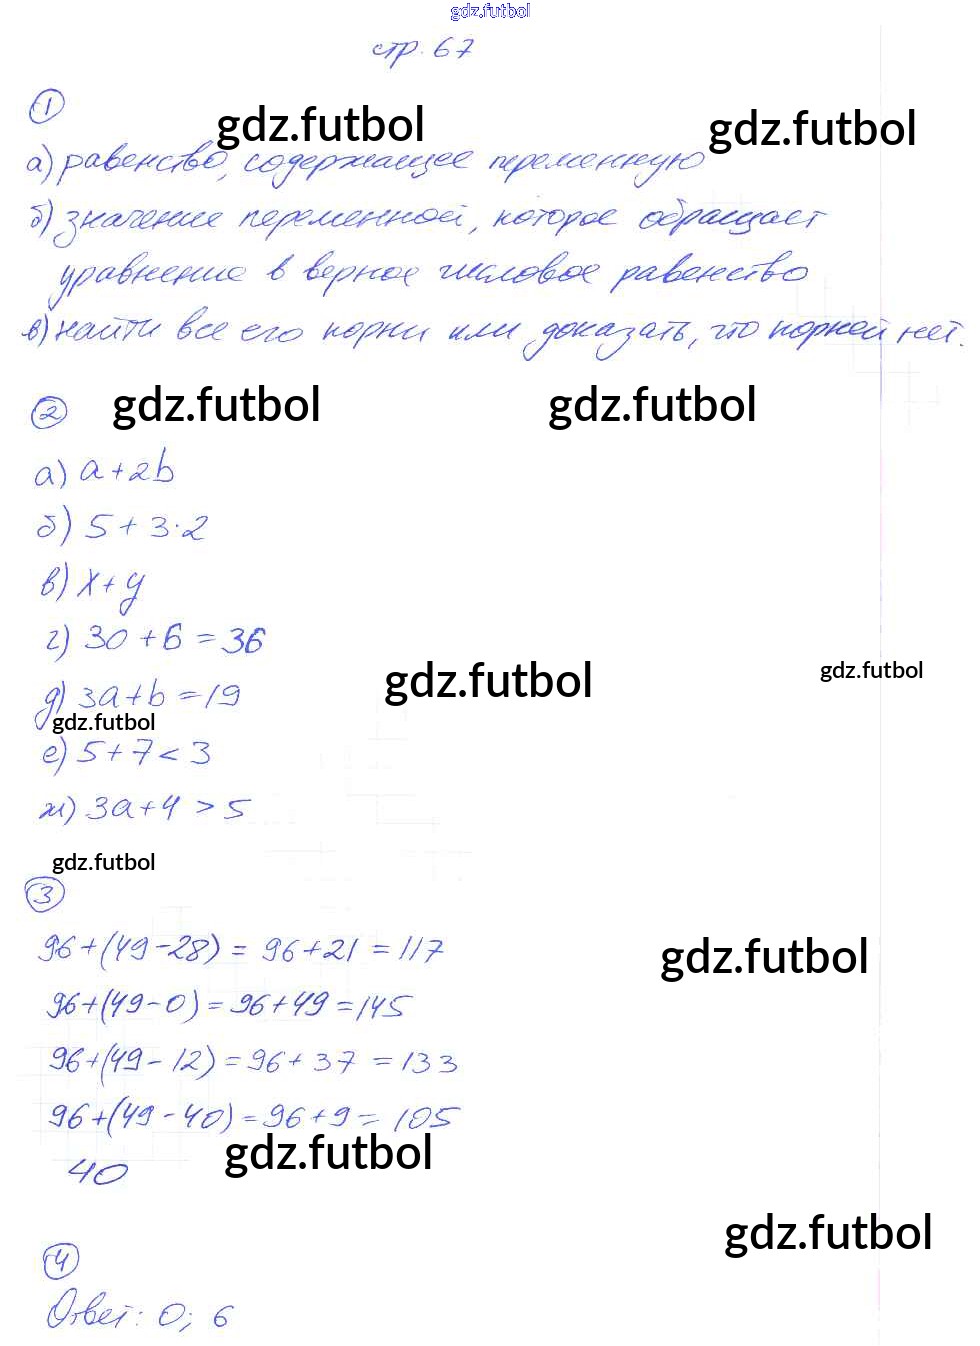 gdz.futbol
стр. 67
1
gdz.futbol gdz.futbol
а) равенство, содержащее переменную
б) значение переменной, которое обращает
уравнение в верное числовое равенство
в) найти все его корни или доказать, что корней нет.
2 gdz.futbol gdz.futbol
а) a + 2b
б) 5 + 3·2
в) x + y
г) 30 + 6 = 36
gdz.futbol gdz.futbol
д) 3a + b = 19
gdz.futbol
е) 5 + 7 < 3
ж) 3a + 4 > 5
gdz.futbol
3
96 + (49 - 28) = 96 + 21 = 117
gdz.futbol
96 + (49 - 0) = 96 + 49 = 145
96 + (49 - 12) = 96 + 37 = 133
96 + (49 - 40) = 96 + 9 = 105
gdz.futbol
40
gdz.futbol
4
Ответ: 0; 6